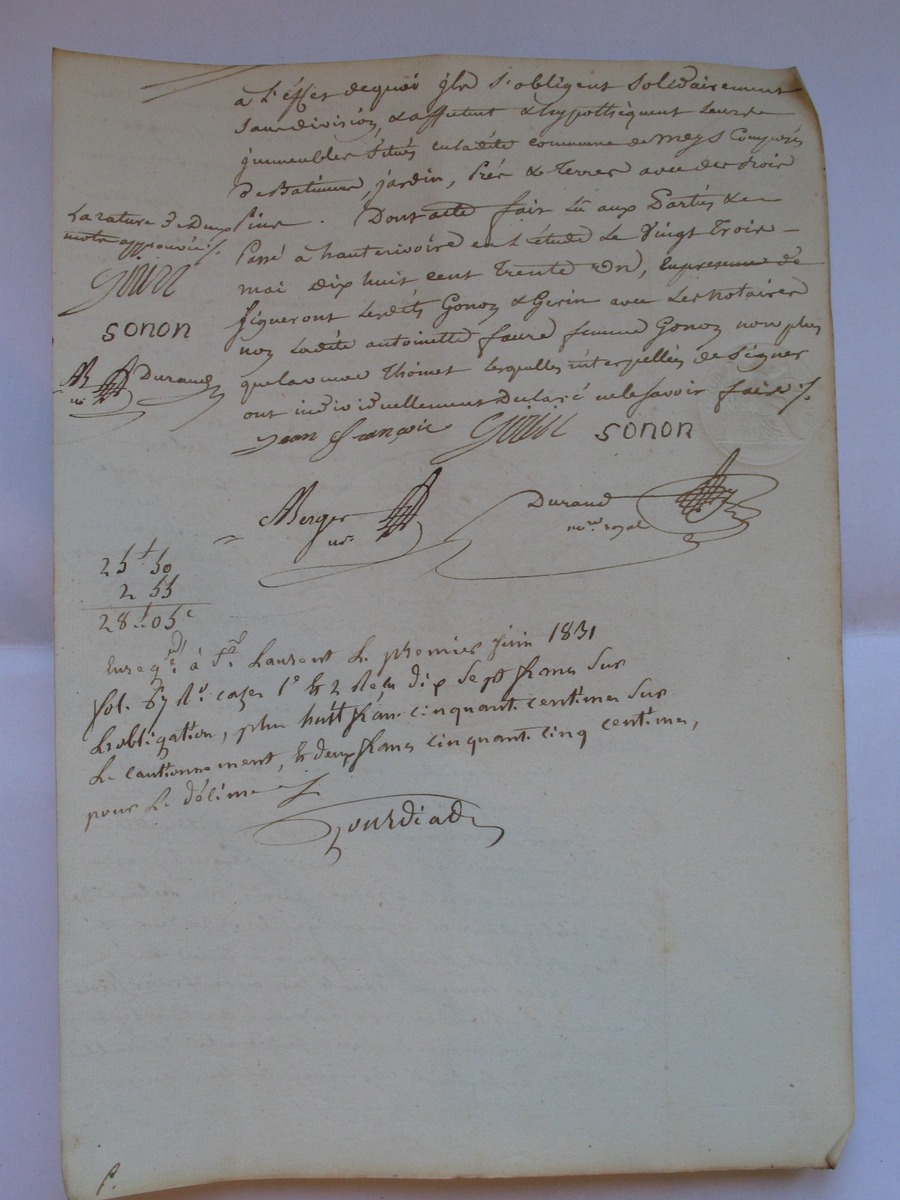 à l'effet dequoi ils s'obligent solidairement
sans division, & affectent & hypothèquent leurs
immeubles situés en ladite commune de meys Composés
De Batimens, jardin, Prés & Terres avec des bois
Pins. Dont acte fait Lû aux Parties &
Passé à hauterivoire en L'étude Le Vingt Trois
mai Dix huit cent Trente un, En presence de
signeront Lesdits Gonon & Gerin avec Les notaires
non Ladite antoinette faure femme Gonon non plus
que la veuve Thomet Lesquelles interpellées de Signer
ont individuellement Declaré ne le savoir faire ./.
La rature de Deux
mots approuvée ./.
Gerin
SONON
Durand
jean françois Gerin SONON
Berger
nre
Durand
nore royal
25f 50
2 55
28f 05c
Enregé à St Laurent Le premier juin 1831
fol. 67 Ro cases 1e & 2 Reçu dix sept francs sur
L'obligation, plus huit fran. cinquant. centimes sur
Le cautionnement, & deux francs cinquant. cinq centimes,
pour Le décime
Gourdiad